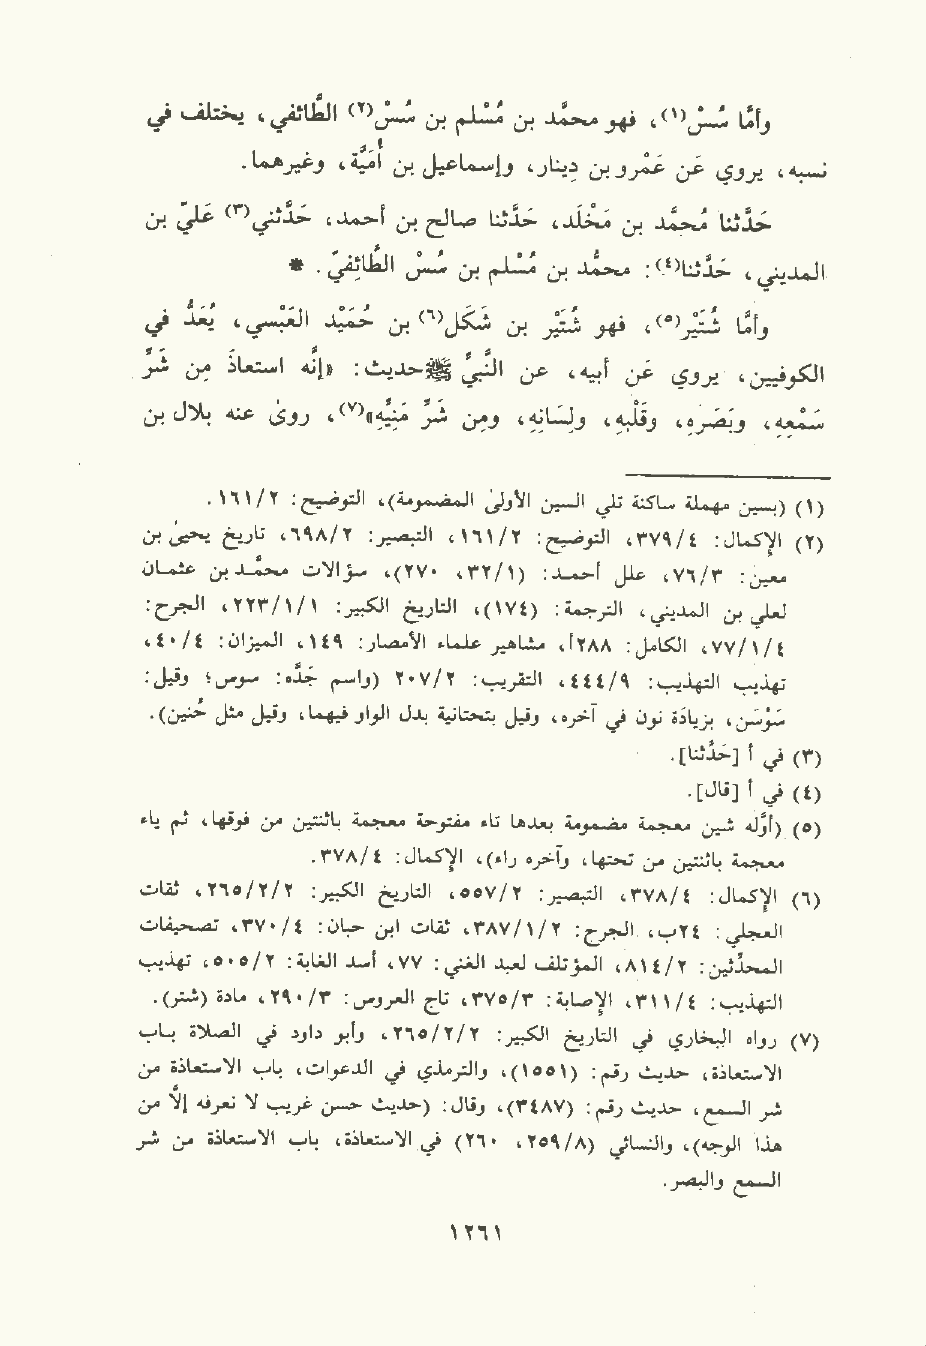 وأمَّا سُسْ(١)، فهو محمَّد بن مُسْلم بن سُسْ(٢) الطَّائفي، يختلف في
نسبه، يروي عَن عَمْرو بن دينار، وإسماعيل بن أُمَيَّة، وغيرهما.
حَدَّثنا مُحمَّد بن مَخْلَد، حَدَّثنا صالح بن أحمد، حَدَّثني(٣) عَليّ بن
المديني، حَدَّثنا(٤): محمَّد بن مُسْلم بن سُسْ الطَّائِفيّ. *
وأمَّا شُتَيْر(٥)، فهو شُتَيْر بن شَكَل(٦) بن حُمَيْد العَبْسي، يُعَدُّ في
الكوفيين، يروي عَن أبيه، عن النَّبيِّ ﷺ حديث: «إنَّه استعاذَ مِن شَرِّ
سَمْعِهِ، وبَصَرِهِ، وقَلْبِهِ، ولِسَانِهِ، ومِن شَرِّ مَنيِّهِ»(٧)، روىٰ عنه بلال بن
(١) (بسين مهملة ساكنة تلي السين الأولىٰ المضمومة)، التوضيح: ١٦١/٢.
(٢) الإكمال: ٣٧٩/٤، التوضيح: ١٦١/٢، التبصير: ٦٩٨/٢، تاريخ يحيىٰ بن
معين: ٧٦/٣، علل أحمد: (٣٢/١، ٢٧٠)، سؤالات محمَّد بن عثمان
لعلي بن المديني، الترجمة: (١٧٤)، التاريخ الكبير: ٢٢٣/١/١، الجرح:
٧٧/١/٤، الكامل: ٢٨٨أ، مشاهير علماء الأمصار: ١٤٩، الميزان: ٤٠/٤،
تهذيب التهذيب: ٤٤٤/٩، التقريب: ٢٠٧/٢ (واسم جَدِّه: سوس؛ وقيل:
سَوْسَن، بزيادة نون في آخره، وقيل بتحتانية بدل الواو فيهما، وقيل مثل حُنين).
(٣) في أ [حَدَّثنا].
(٤) في أ [قال].
(٥) (أوَّله شين معجمة مضمومة بعدها تاء مفتوحة معجمة باثنتين من فوقها، ثم ياء
معجمة باثنتين من تحتها، وآخره راء)، الإكمال: ٣٧٨/٤.
(٦) الإكمال: ٣٧٨/٤، التبصير: ٥٥٧/٢، التاريخ الكبير: ٢٦٥/٢/٢، ثقات
العجلي: ٢٤ب، الجرح: ٣٨٧/١/٢، ثقات ابن حبان: ٣٧٠/٤، تصحيفات
المحدِّثين: ٨١٤/٢، المؤتلف لعبد الغني: ٧٧، أسد الغابة: ٥٠٥/٢، تهذيب
التهذيب: ٣١١/٤، الإصابة: ٣٧٥/٣، تاج العروس: ٢٩٠/٣، مادة (شتر).
(٧) رواه البخاري في التاريخ الكبير: ٢٦٥/٢/٢، وأبو داود في الصلاة باب
الاستعاذة، حديث رقم: (١٥٥١)، والترمذي في الدعوات، باب الاستعاذة من
شر السمع، حديث رقم: (٣٤٨٧)، وقال: (حديث حسن غريب لا نعرفه إلاَّ من
هذا الوجه)، والنسائي (٢٥٩/٨، ٢٦٠) في الاستعاذة، باب الاستعاذة من شر
السمع والبصر.
١٢٦١